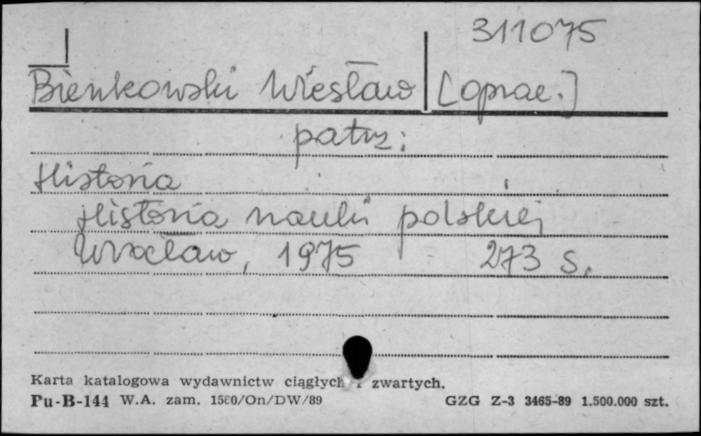 311075
Bieńkowski Wiesław [oprac.]
patrz:
Historia
Historia nauki polskiej
Wrocław, 1975 273 s.
Karta katalogowa wydawnictw ciągłych i zwartych.
Pu-B-144 W.A. zam. 1560/On/DW/89 GZG Z-3 3465-89 1.500.000 szt.